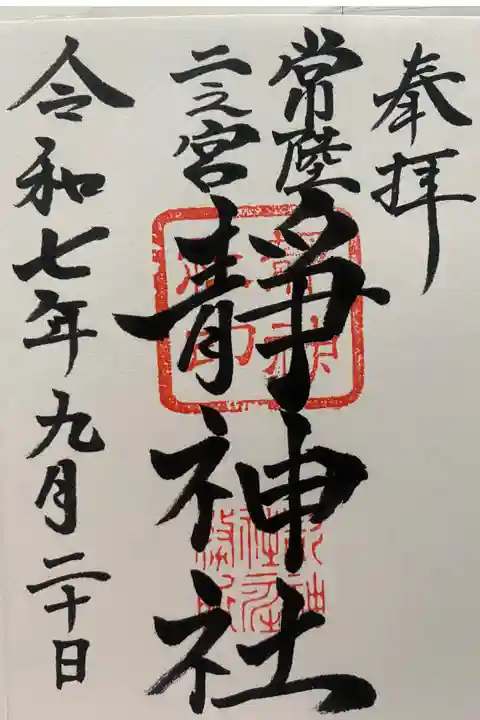 奉拝
常陸
二之宮
靜神社
令和七年九月二十日